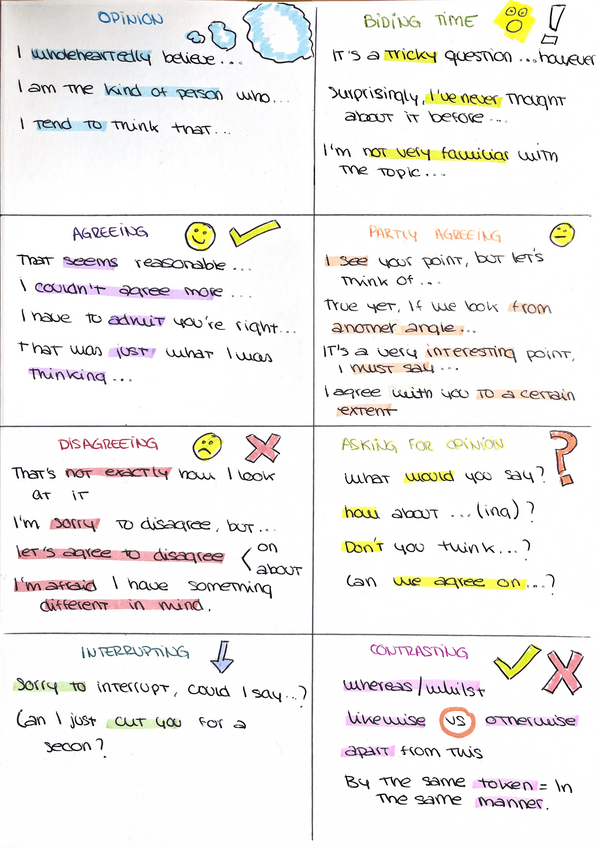 OPINION
I wholeheartedly believe...
I am the kind of person who...
I tend to think that...
BIDING TIME
It's a tricky question...however
Surprisingly, I've never thought
about it before...
I'm not very familiar with
the topic...
AGREEING
That seems reasonable...
I couldn't agree more...
I have to admit you're right...
that was just what I was
thinking...
PARTLY AGREEING
I see your point, but let's
think of...
true yet, if we look from
another angle...
It's a very interesting point,
I must say...
I agree with you to a certain
extent
DISAGREEING
That's not exactly how I look
at it
I'm sorry to disagree, but...
let's agree to disagree
on
about
I'm afraid I have something
different in mind.
ASKING FOR OPINION
what would you say?
how about ...(ing)?
Don't you think...?
Can we agree on...?
INTERRUPTING
Sorry to interrupt, could I say...?
Can I just cut you for a
secon?
CONTRASTING
whereas/whilst
likewise VS otherwise
apart from this
By the same token = In
the same manner.